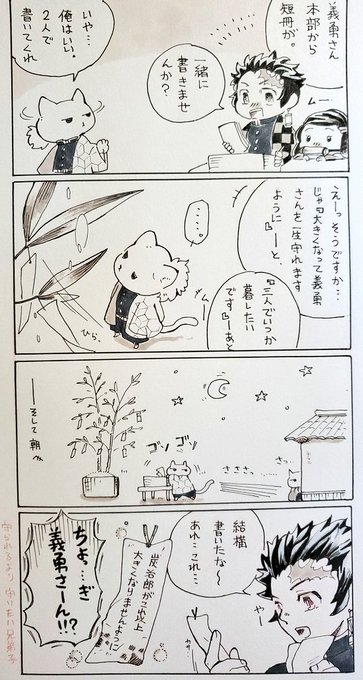 義勇さん
本部から
短冊が。
一緒に
書きませ
んか?
ムー
いや…
俺はいい。
2人で
書いてくれ
えーっそうですか…
じゃ曰大きくなって義勇
さんを一生守れます
ように』ーと、
『三人でいつか
暮したい
です』ーあと
……。
ムー
ひら、
――そして朝
ゴソ
ゴソ
さささ、
さっ
結構
書いたな〜
あれ…これ…
炭治郎がこれ以上
大きくなりませんように
ちょ…ぎ
義勇さーん!!?
守られるより守りたい兄弟子